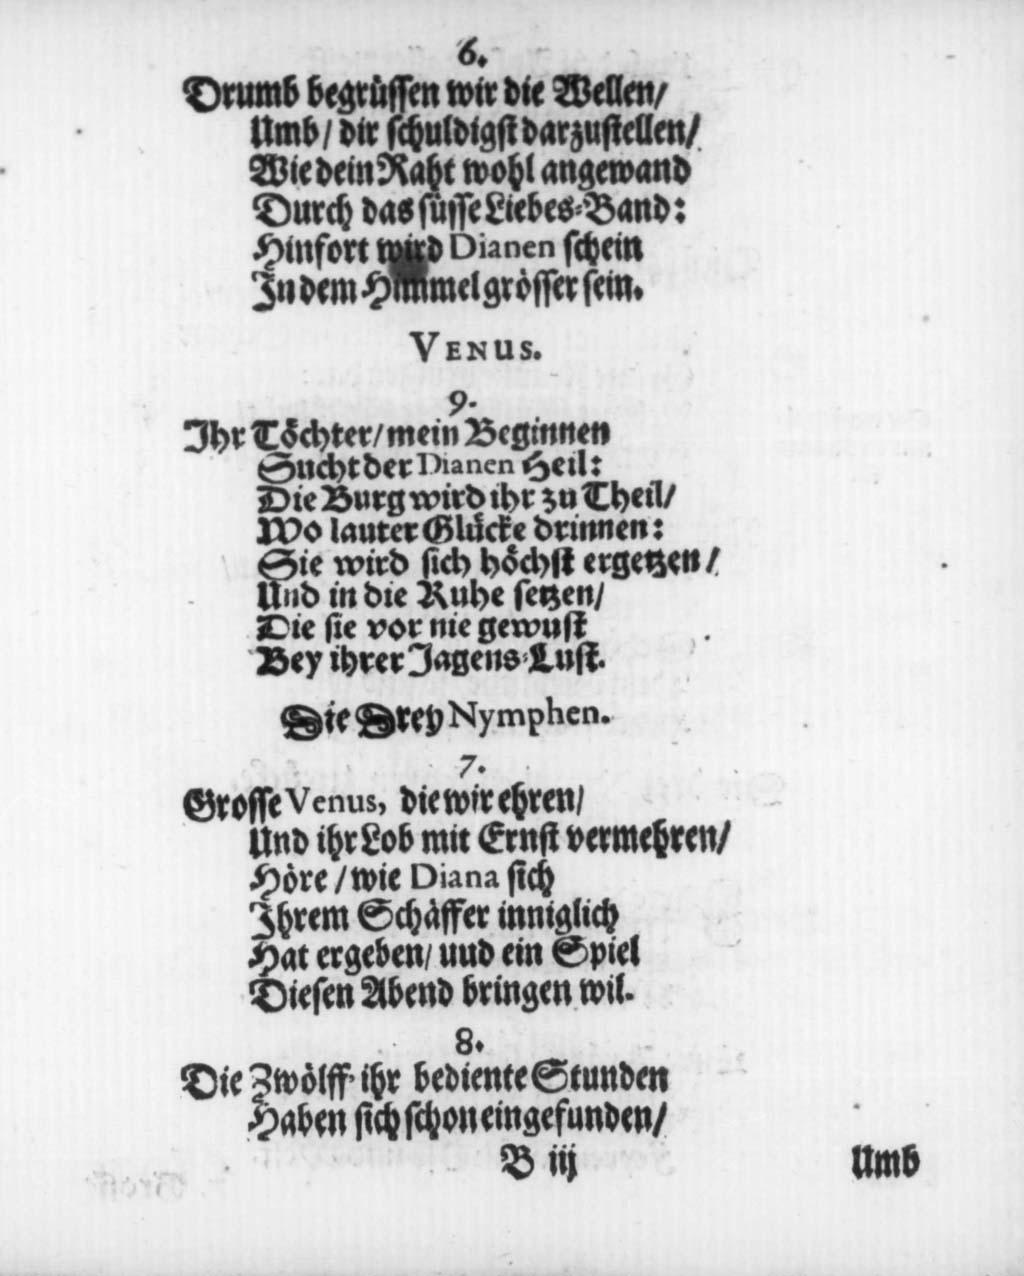 6.
Drumb begrüssen wir die Wellen/
Umb/ dir schuldigst darzustellen/
Wie dein Raht wohl angewand
Durch das süsse Liebes-Band:
Hinfort wird Dianen schein
In dem Himmel grösser sein.
VENUS.
9.
Ihr Töchter/ mein Beginnen
Sucht der Dianen Heil:
Die Burg wird ihr zu Theil/
Wo lauter Glücke drinnen:
Sie wird sich höchst ergetzen/
Und in die Ruhe setzen/
Die sie vor nie gewust
Bey ihrer Jagens-Lust.
Die Drey Nymphen.
7.
Grosse Venus, die wir ehren/
Und ihr Lob mit Ernst vermehren/
Höre/ wie Diana sich
Ihrem Schäffer inniglich
Hat ergeben/ uud ein Spiel
Diesen Abend bringen wil.
8.
Die Zwölff ihr bediente Stunden
Haben sich schon eingefunden/
B iij Umb